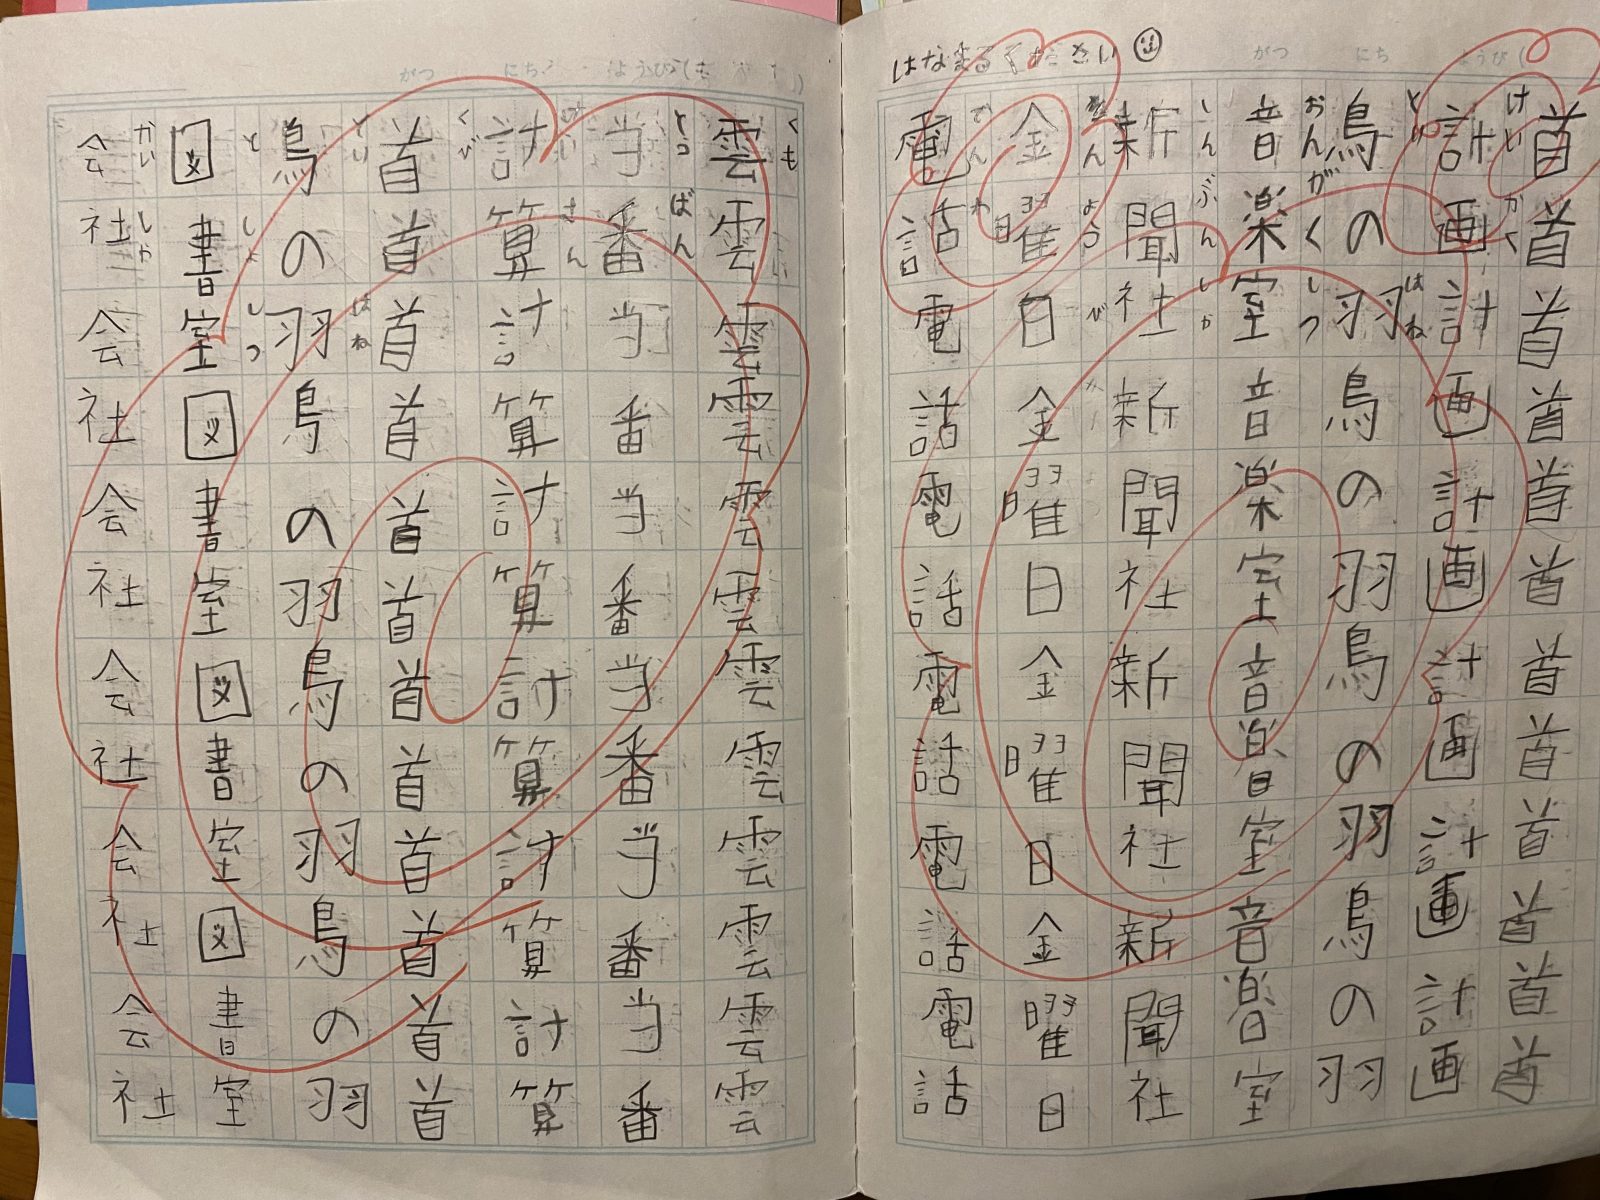 はなまるください
がつ にち ようび (
首首首首首首首首首首首首
けいかく
計画計画計画計画計画計画
とり はね
鳥の羽鳥の羽鳥の羽鳥の羽
おんがくしつ
音楽室音楽室音楽室音楽室
しんぶんしゃ
新聞社新聞社新聞社新聞社
きんようび
金曜日金曜日金曜日金曜日
でんわ
電話電話電話電話電話電話
がつ にち ようび(
くも
雲雲雲雲雲雲雲雲雲雲雲雲
とうばん
当番当番当番当番当番当番
けいさん
計算計算計算計算計算計算
くび
首首首首首首首首首首首首
とり はね
鳥の羽鳥の羽鳥の羽鳥の羽
としょしつ
図書室図書室図書室図書室
かいしゃ
会社会社会社会社会社会社